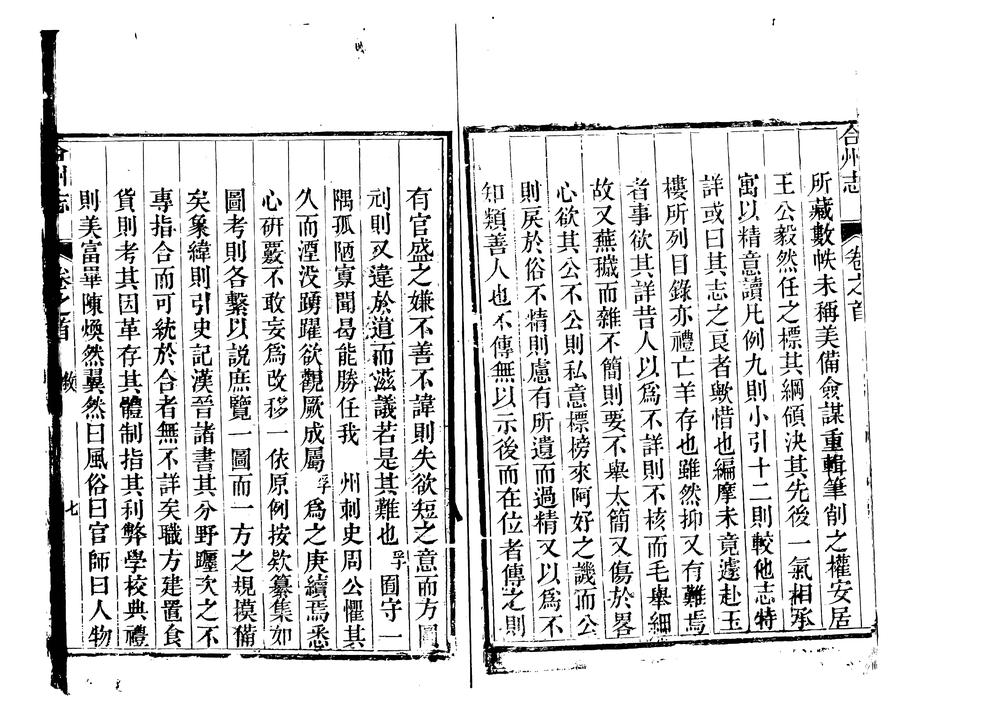 合州志
卷之首
所藏數帙未稱美備僉謀重輯筆削之權安居
王公毅然任之標其綱領決其先後一氣相承
寓以精意讀凡例九則小引十二則較他志特
詳或曰其志之良者歟惜也編摩未竟遽赴玉
樓所列目錄亦禮亡羊存也雖然抑又有難焉
者事欲其詳昔人以爲不詳則不核而毛舉細
故又蕪穢而雜不簡則要不舉太簡又傷於畧
心欲其公不公則私意標榜來阿好之譏而公
則戾於俗不精則慮有所遺而過精又以爲不
知類善人也不傳無以示後而在位者傳之則
有官盛之嫌不善不諱則失欲短之意而方圓
刓則又違於道而滋議若是其難也孚囿守一
隅孤陋寡聞曷能勝任我 州刺史周公懼其
久而湮没踴躍欲觀厥成屬孚爲之庚續焉悉
心研覈不敢妄爲改移一依原例按欵纂集如
圖考則各繫以説庶覽一圖而一方之規模備
矣象緯則引史記漢晉諸書其分野躔次之不
專指合而可統於合者無不詳矣職方建置食
貨則考其因革存其體制指其利弊學校典禮
則美富畢陳煥然翼然曰風俗曰官師曰人物
合州志
卷之首
七